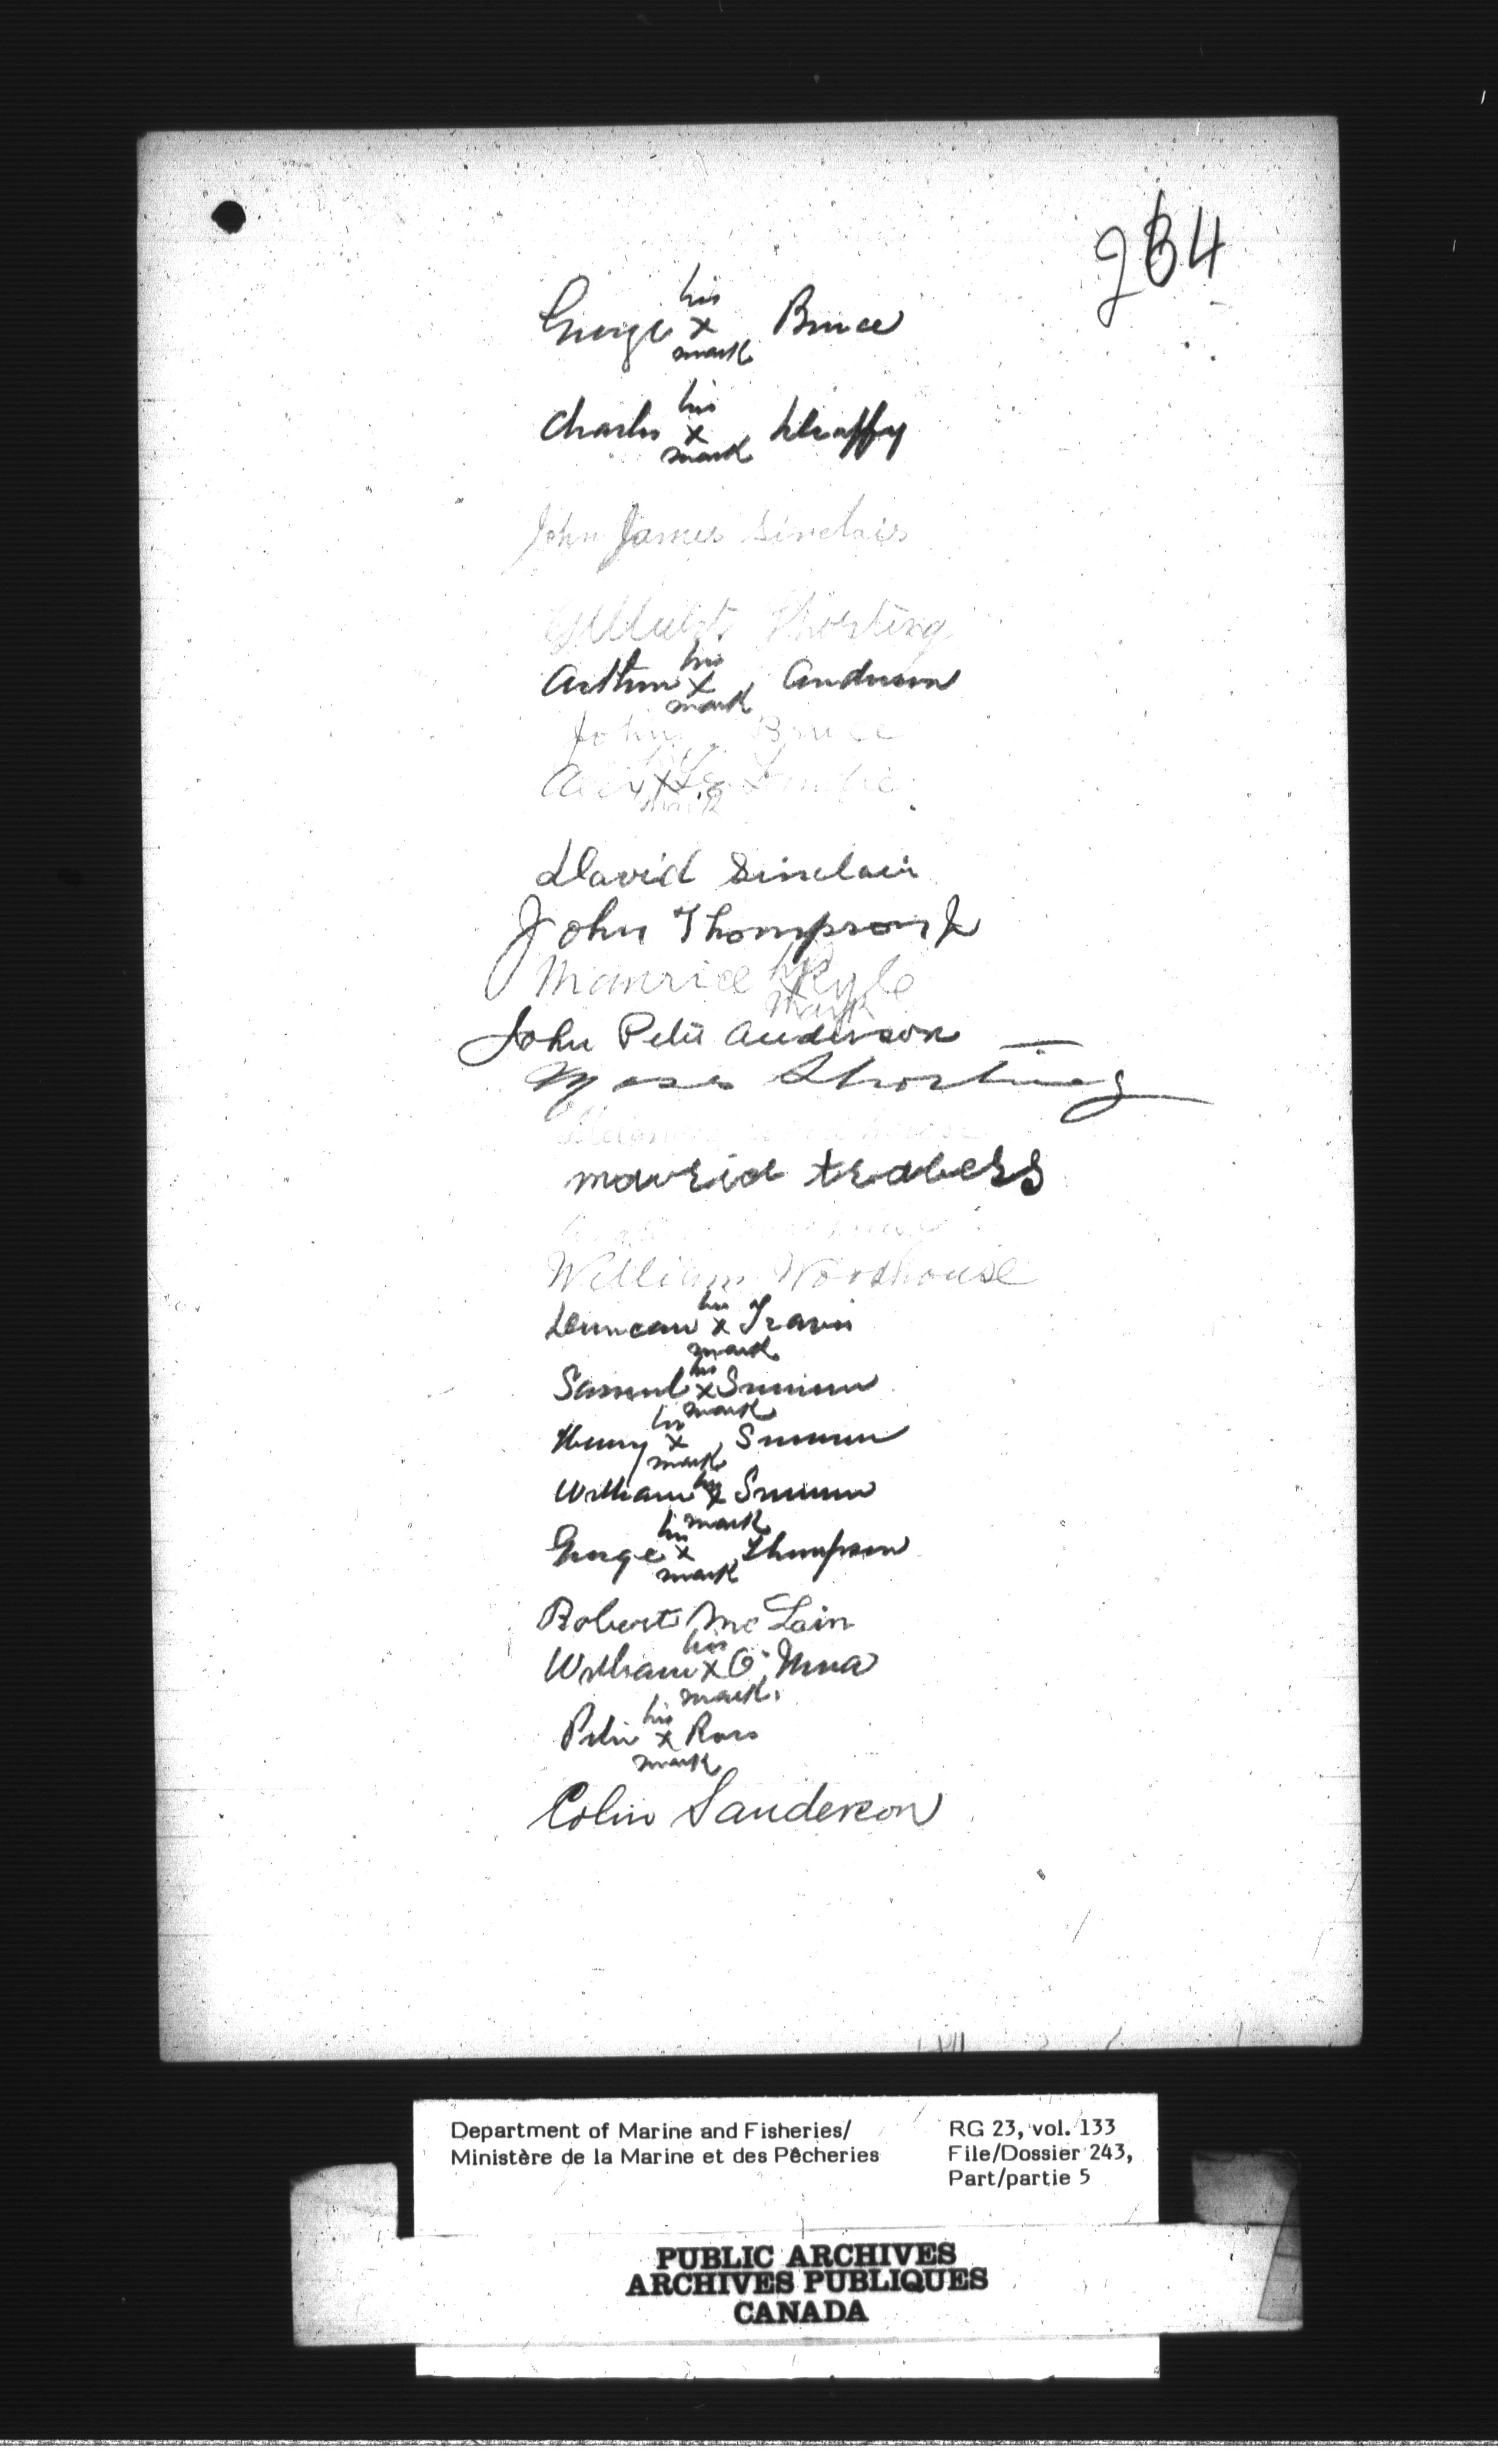 234
George his x mark Bruce
Charles his x mark
John James Sinclair
Shorting
Arthur his x mark Anderson
John Bruce
mark
David Sinclair
John Thompson Jr
Maurice his x mark Kyle
John Peter Anderson
Moses Shorting
maurice
William Woodhouse
Duncan his x mark Travis
Samuel his x mark Sumner
Henry his x mark Sumner
William his x mark Sumner
George his x mark Thompson
Robert McLain
William his x mark
Peter his x mark Ross
Colin Sanderson
Department of Marine and Fisheries/
Ministère de la Marine et des Pêcheries
RG 23, vol. 133
File/Dossier 243,
Part/partie 5
PUBLIC ARCHIVES
ARCHIVES PUBLIQUES
CANADA